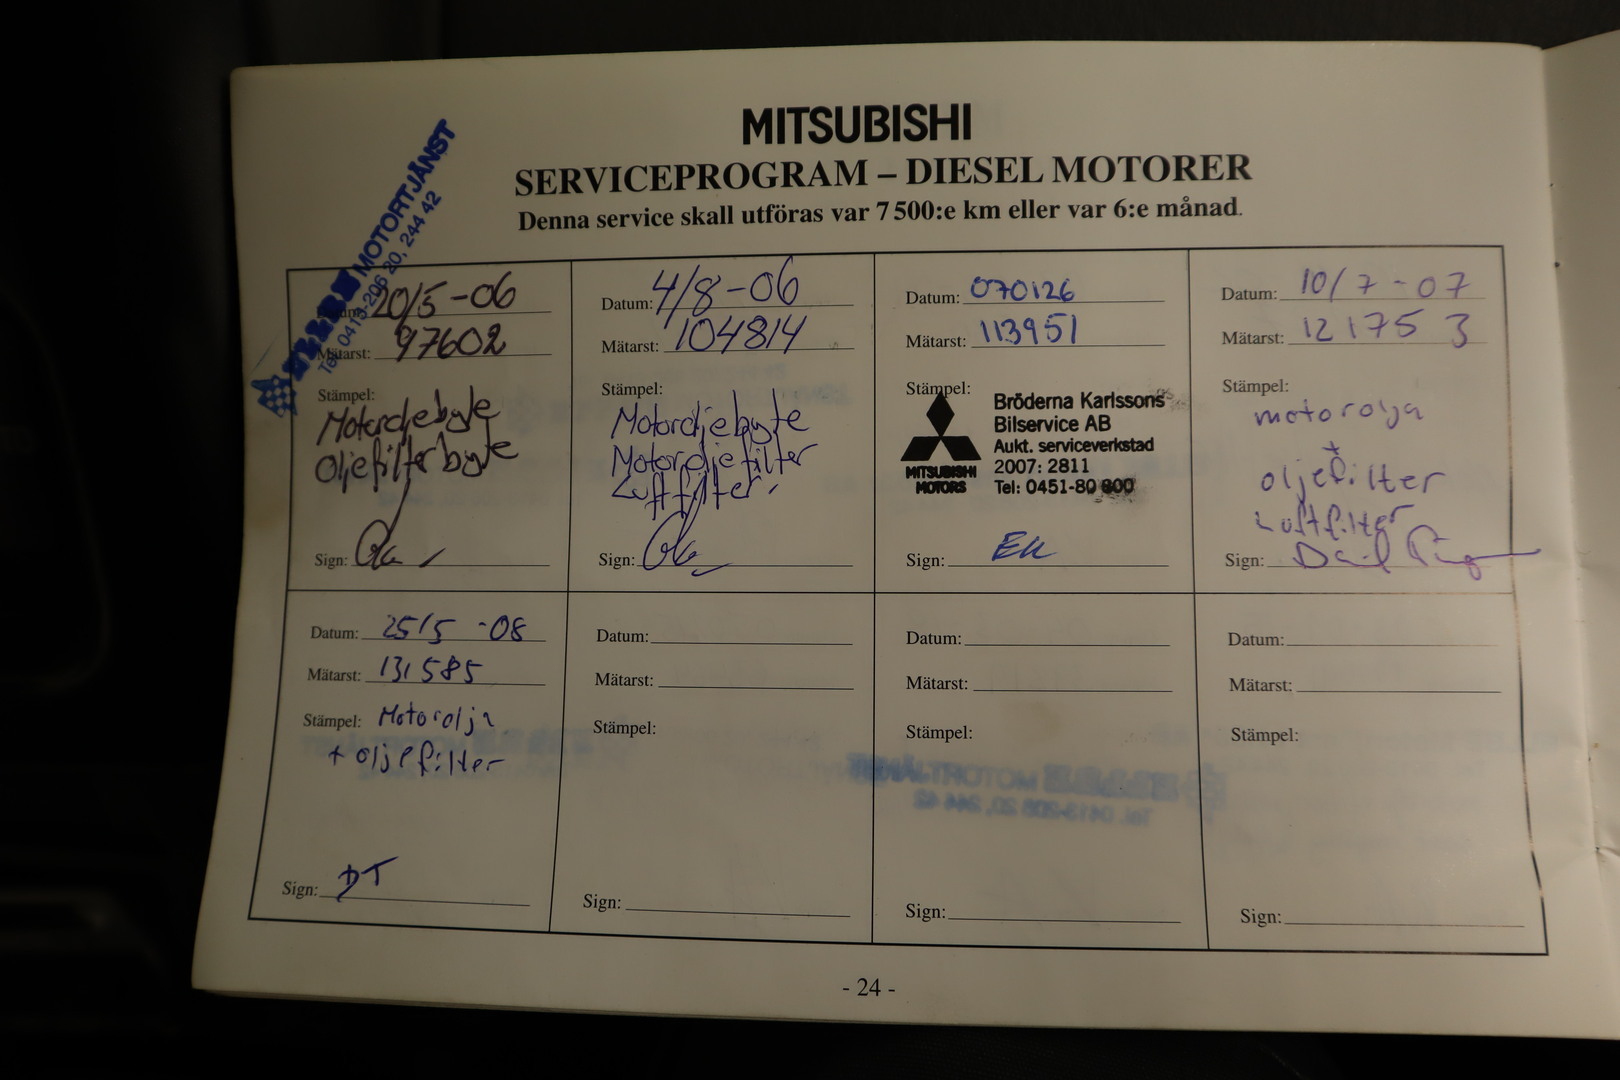 MITSUBISHI
SERVICEPROGRAM – DIESEL MOTORER
Denna service skall utföras var 7 500:e km eller var 6:e månad.
MOTORTJÄNST
Tel. 0413-206 20, 244 42
Datum: 20/5-06
Mätarst: 97602
Stämpel:
Motoroljebyte
Oljefilterbyte
Sign:
Datum: 4/8-06
Mätarst: 104814
Stämpel:
Motoroljebyte
Motoroljefilter
Luftfilter.
Sign:
Datum: 070126
Mätarst: 113951
Stämpel:
MITSUBISHI
MOTORS
Bröderna Karlssons
Bilservice AB
Aukt. serviceverkstad
2007: 2811
Tel: 0451-80 800
Sign:
Datum: 10/7-07
Mätarst: 121753
Stämpel:
motorolja
+
oljefilter
Luftfilter
Sign:
Datum: 25/5-08
Mätarst: 131585
Stämpel: Motorolja
+ oljefilter
Sign: DT
Datum:
Mätarst:
Stämpel:
Sign:
Datum:
Mätarst:
Stämpel:
Sign:
Datum:
Mätarst:
Stämpel:
Sign:
- 24 -